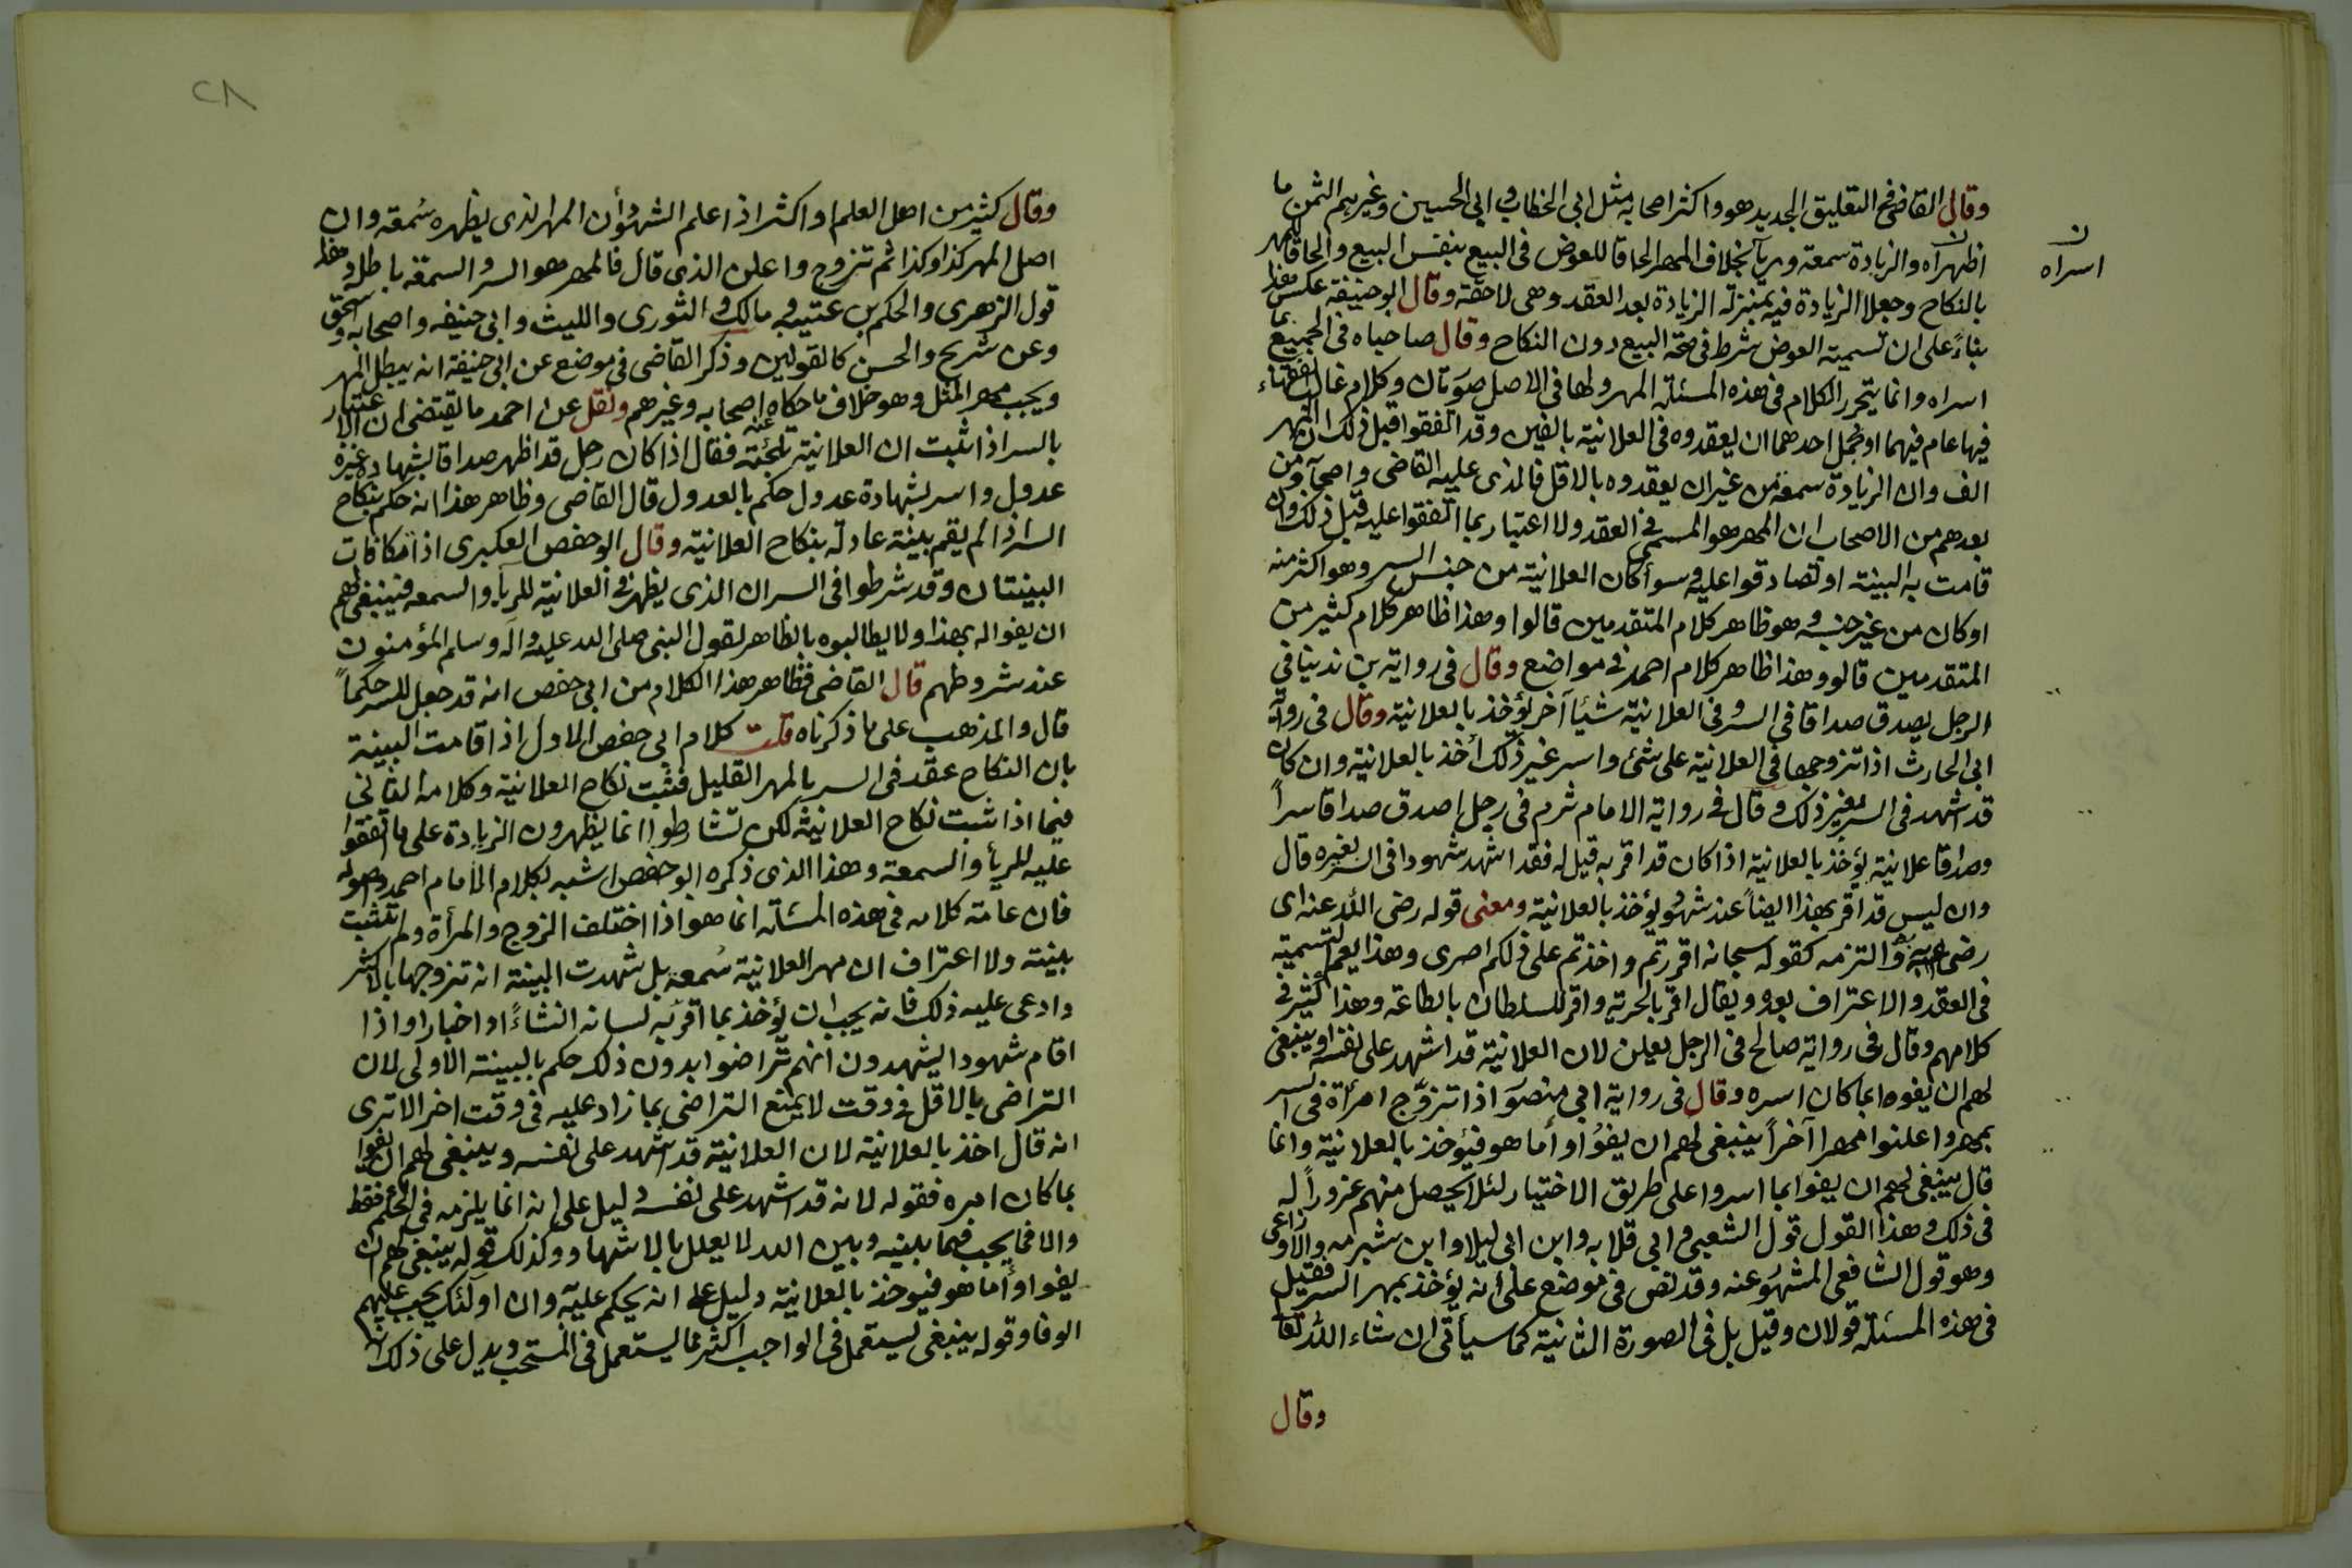 وقال القاضى فى التعليق الجديد هو واكثر اصحابه مثل ابى الخطاب وابى الحسين وغيرهم الثمن ما
اظهراه والزيادة سمعة ورياً بخلاف المهر الحاقا للعوض فى البيع بنفس البيع والحاقا للمهر
ن
اسراه
بالنكاح وجعلا الزيادة فيه بمنزلة الزيادة بعد العقد وهى لاحقة وقال ابو حنيفة عكس هذا
بناءً على ان تسمية العوض شرط فى صحة البيع دون النكاح وقال صاحباه فى الجميع بما
اسراه وانما يتحرر الكلام فى هذه المسئلة المهر ولها فى الاصل صورتان وكلام غالب الفقهاء
فيها عام فيهما او مجمل احدهما ان يعقدوه فى العلانية بالفين وقد اتفقوا قبل ذلك ان المهر
الف وان الزيادة سمعة من غير ان يعقدوه بالاقل فالذى عليه القاضى واصحابه ومن
بعدهم من الاصحاب ان المهر هو المسمى فى العقد ولا اعتبار بما اتفقوا عليه قبل ذلك وان
قامت به البينة او تصادقوا عليه وسوأ كان العلانية من جنس السر وهو اكثر منه
او كان من غير جنسه وهو ظاهر كلام المتقدمين قالوا وهذا ظاهر كلام كثير من
المتقدمين قالوو هذا ظاهر كلام احمد فى مواضع وقال فى رواية بن ندينا فى
الرجل يصدق صداقا فى السر وفى العلانية شيئا آخر يؤخذ بالعلانية وقال فى رواية
ابى الحارث اذا تزوجها فى العلانية على شئ واسر غير ذلك أخذ بالعلانية وان كان
قد اشهد فى السر بغير ذلك وقال فى رواية الامام ثرم فى رجل اصدق صداقا سراً
وصداقا علانية يؤخذ بالعلانية اذا كان قد اقر به قيل له فقد اشهد شهودا فى السر بغيره قال
وان ليس قد اقر بهذا ايضاً عند شهود يؤخذ بالعلانية ومعنى قوله رضى الله عنه اى
رضى به والتزمه كقوله سبحانه اقررتم واخذتم على ذلكم اصرى وهذا يعم التسمية
فى العقد والاعتراف بعده ويقال اقر بالجزية واقر للسلطان بالطاعة وهذا كثير فى
كلامهم وقال فى رواية صالح فى الرجل يعلن لان العلانية قد اشهد على نفسه وينبغى
لهم ان يفوه ابما كان اسره وقال فى رواية ابى منصور اذا تزوّج امرأة فى السر
بمهر واعلنوا مهرا آخراً ينبغى لهم ان يفوا وأما هو فيؤخذ بالعلانية وانما
قال ينبغى لهم ان يفوا بما اسروا على طريق الاختيار لئلا يحصل منهم غروراً له
فى ذلك وهذا القول قول الشعبى وابى قلابه وابن ابى ليلا وابن شبرمه والاوزاعى
وهو قول الشافعى المشهور عنه وقد نص فى موضع على أنه يؤخذ بمهر السر فقيل
فى هذه المسئلة قولان وقيل بل فى الصورة الثانية كما سيأتى ان شاء الله تعا
وقال
٢٨
وقال كثير من اهل العلم او اكثر اذا علم الشهود أن المهر الذى يظهره سُمعة وان
اصل المهر كذا وكذا ثم تزوج واعلن الذى قال فالمهر هو السر والسمعة باطله وهذا
قول الزهرى والحكم بن عتيبه ومالك والثورى والليث وابى حنيفه واصحابه واسحق
وعن شريح والحسن كالقولين وذكر القاضى فى موضع عن ابى حنيفة انه يبطل المهر
ويجب مهر المثل وهو خلاف ما حكاه عنه اصحابه وغيرهم ونقل عن احمد ما يقتضى ان الاعتبار
بالسر اذا ثبت ان العلانية تلجئة فقال اذا كان رجل قد اظهر صداقا بشهادة غيره
عدول واسر بشهادة عدول حكم بالعدول قال القاضى وظاهر هذا انه حكم بنكاح
السر اذا لم يقم بينة عادلة بنكاح العلانية وقال ابو حفص العكبرى اذا تكافات
البينتان وقد شرطوا فى السر ان الذى يظهر فى العلانية للريآ والسمعه فينبغى لهم
ان يفوا له بهذا ولا يطالبوه بالظاهر لقول النبى صلى الله عليه وآله وسلم المؤمنون
عند شروطهم قال القاضى فظاهر هذا الكلام من ابى حفص انه قد جعل للسر حكماً
قال والمذهب على ما ذكرناه قلت كلام ابى حفص الاول اذا قامت البينة
بان النكاح عقد فى السر بالمهر القليل فثبت نكاح العلانية وكلامه الثانى
فيما اذا ثبت نكاح العلانية لكن تشارطوا انما يظهرون الزيادة على ما اتفقوا
عليه للريأ والسمعة وهذا الذى ذكره ابو حفص اشبه بكلام الامام احمد واصوله
فان عامة كلامه فى هذه المسئلة انما هو اذا اختلف الزوج والمرأة ولم تثبت
بينة ولا اعتراف ان مهر العلانية سُمعة بل شهدت البينة انه تزوجها بالاكثر
وادعى عليه ذلك فانه يجب ان يؤخذ بما اقر به لسانه انشاءً او اخبارا واذا
اقام شهودا يشهدون انهم تراضوا بدون ذلك حكم بالبينة الاولى لان
التراضى بالاقل فى وقت لا يمنع التراضى بما زاد عليه فى وقت اخر الا ترى
انه قال اخذ بالعلانية لان العلانية قد اشهد على نفسه وينبغى لهم ان يفوا
بما كان اسره فقوله لانه قد اشهد على نفسه دليل على انه انما يلزمه فى الحكم فقط
والا فما يجب فيما بينه وبين الله لا يعلل بالاشهاد وكذلك قوله ينبغى لهم ان
يفوا وأما هو فيوخذ بالعلانية دليل على انه يحكم عليه وان اولئك يجب عليهم
الوفا وقوله ينبغى يستعمل فى الواجب اكثر مما يستعمل فى المستحب ويدل على ذلك انه